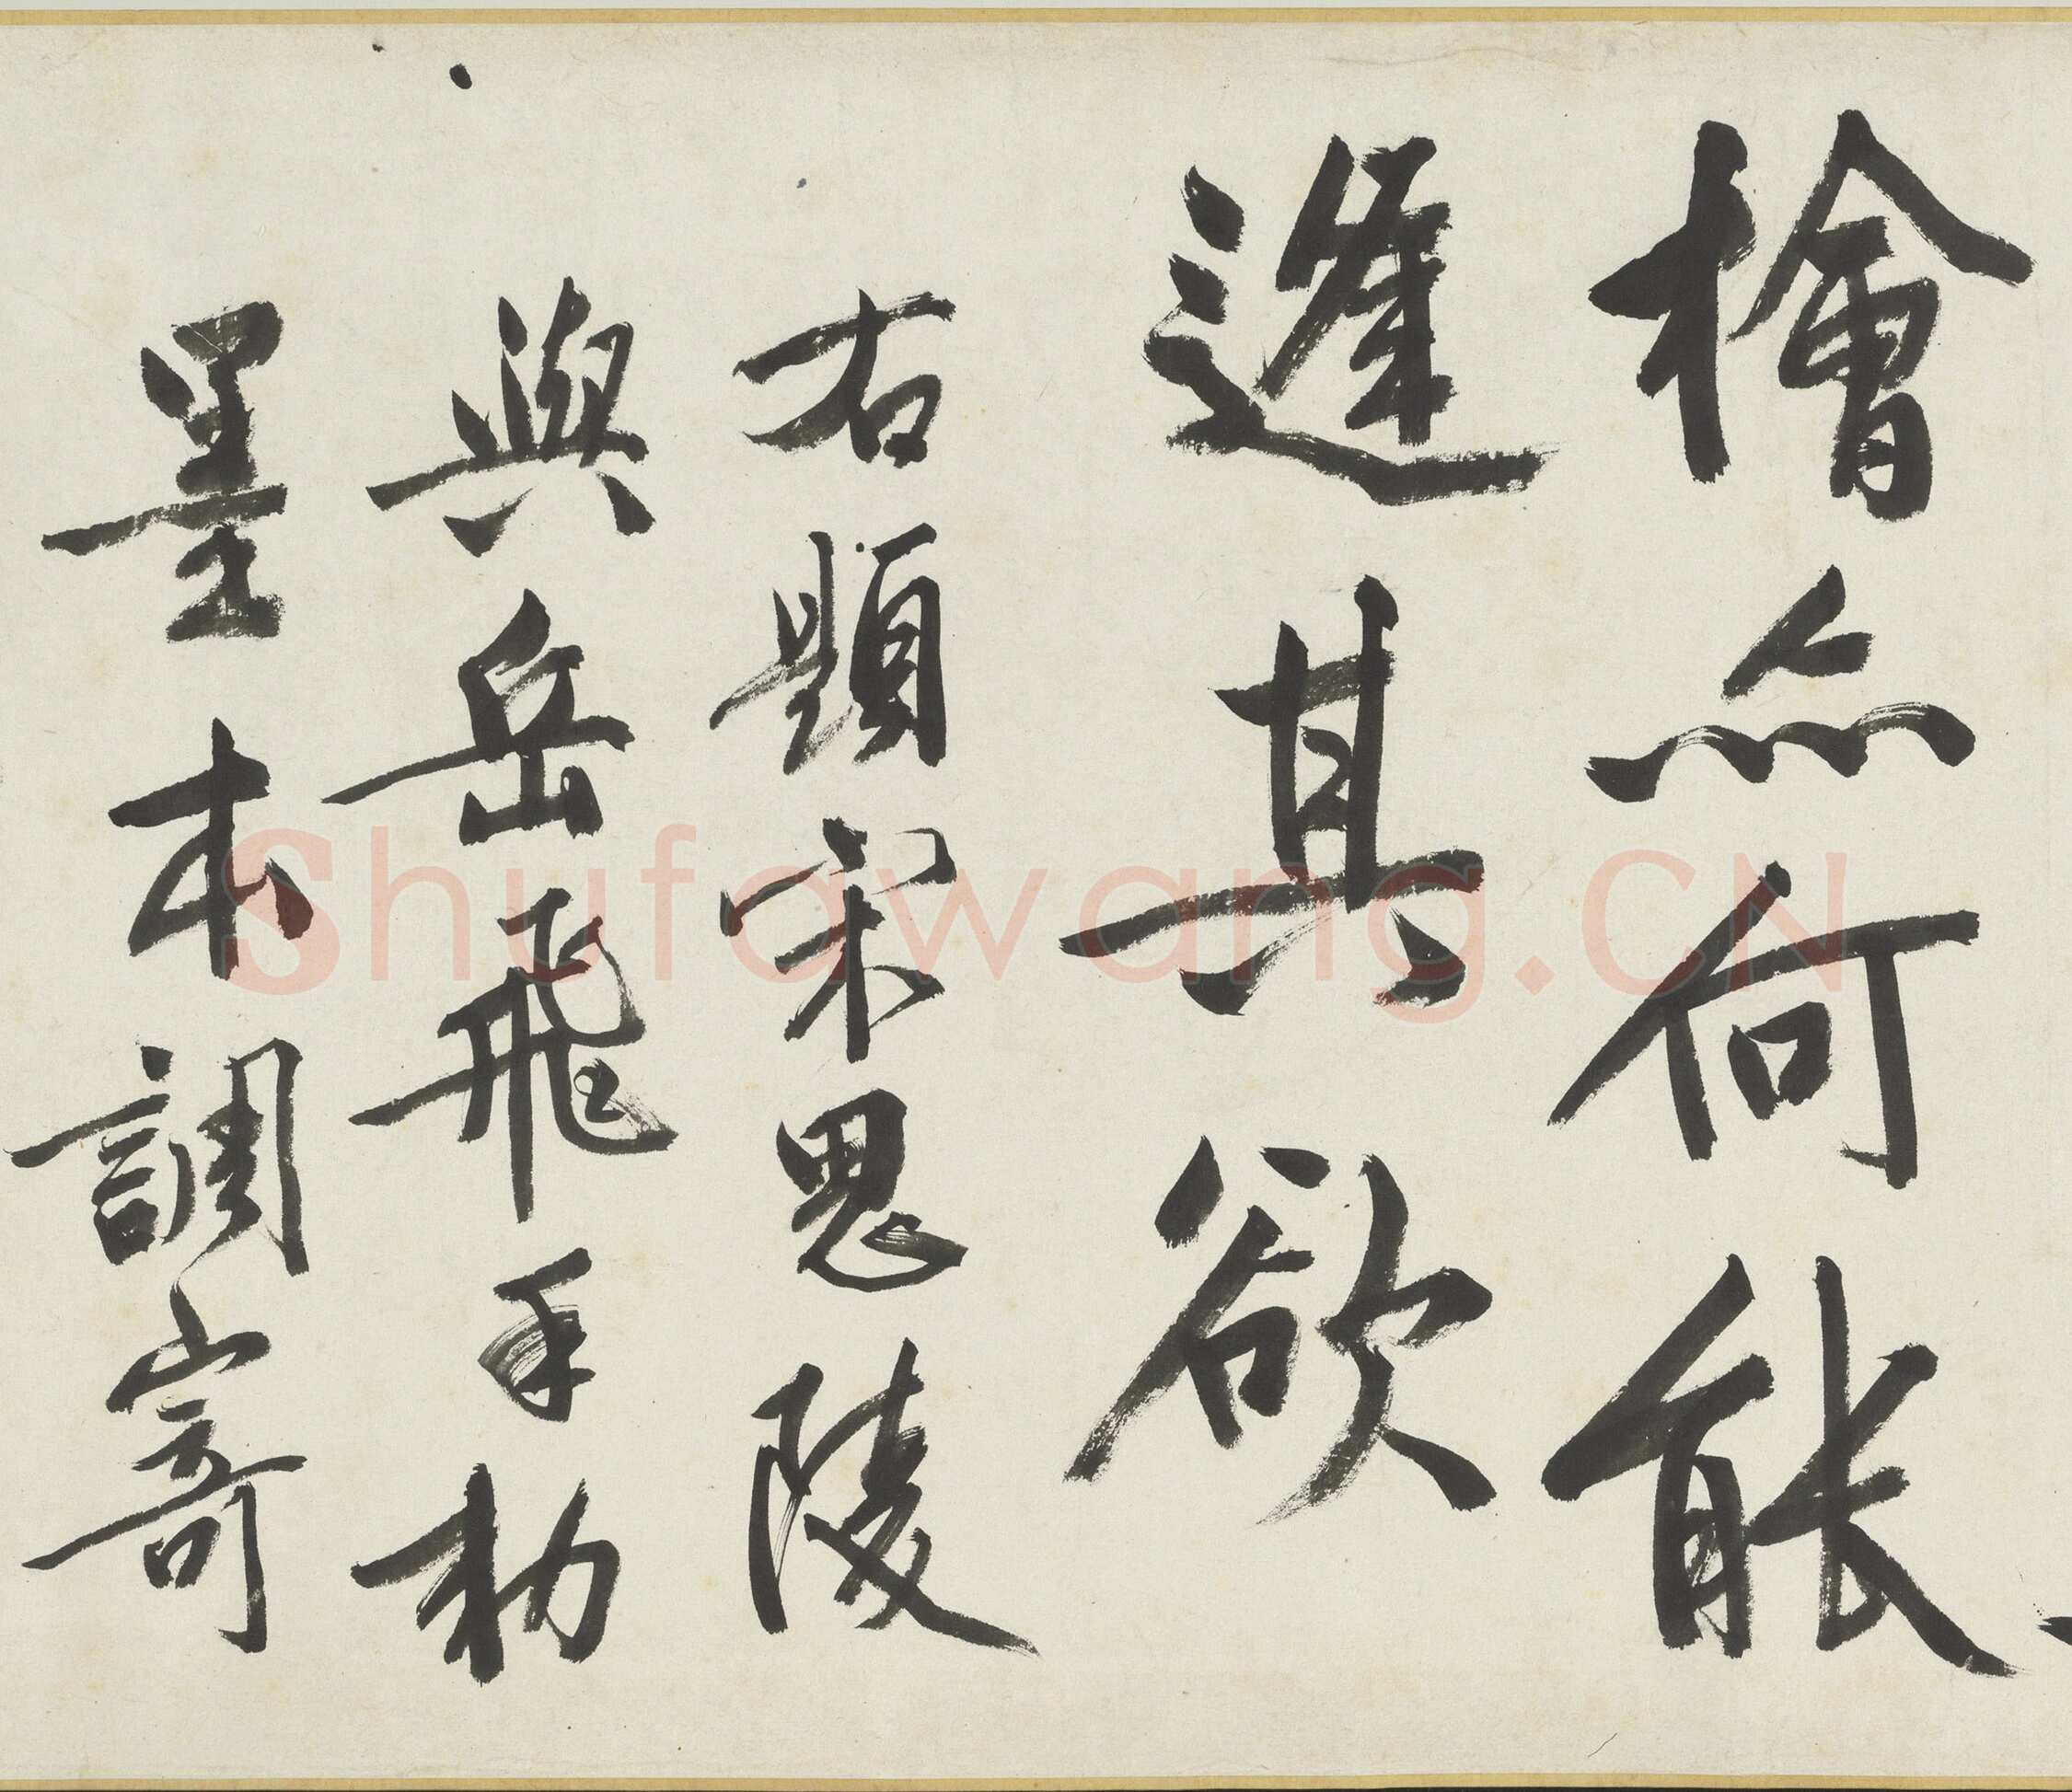 檜亦何能
逢其欲
右題宋思陵
與岳飛手勅
墨本調寄
Shufawang.CN